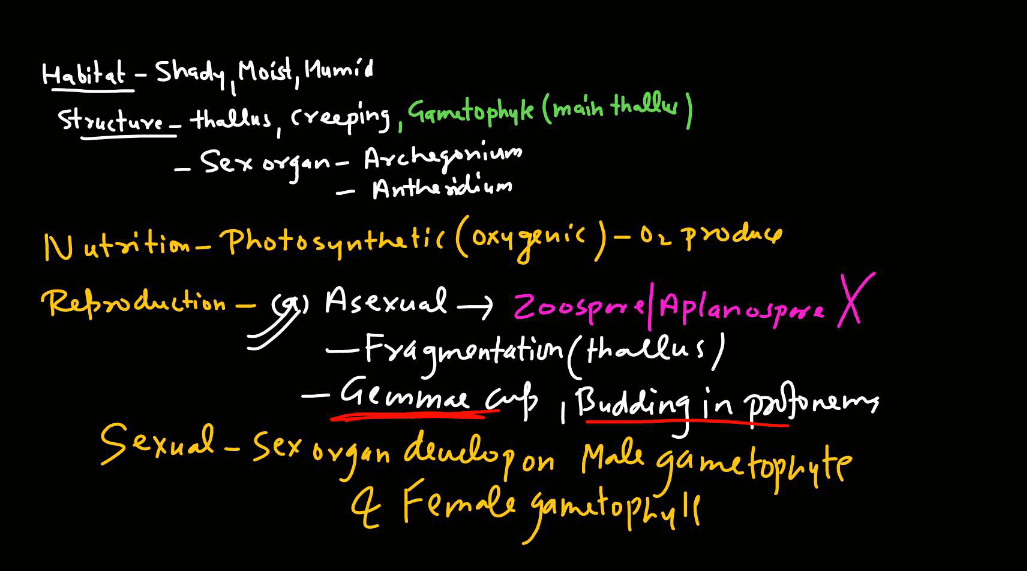 Habitat - Shady, Moist, Humid
Structure - thallus, creeping, Gametophyte (main thallus)
- Sex organ - Archegonium
- Antheridium
Nutrition - Photosynthetic (oxygenic) - O2 produce
Reproduction - (a) Asexual → Zoospore/Aplanospore X
- Fragmentation (thallus)
- Gemmae cup, Budding in protonema
Sexual - Sex organ develop on Male gametophyte
& Female gametophyte